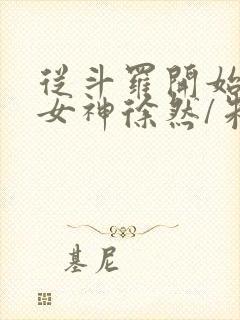 從斗羅開始
女神徐然/朱
基尼